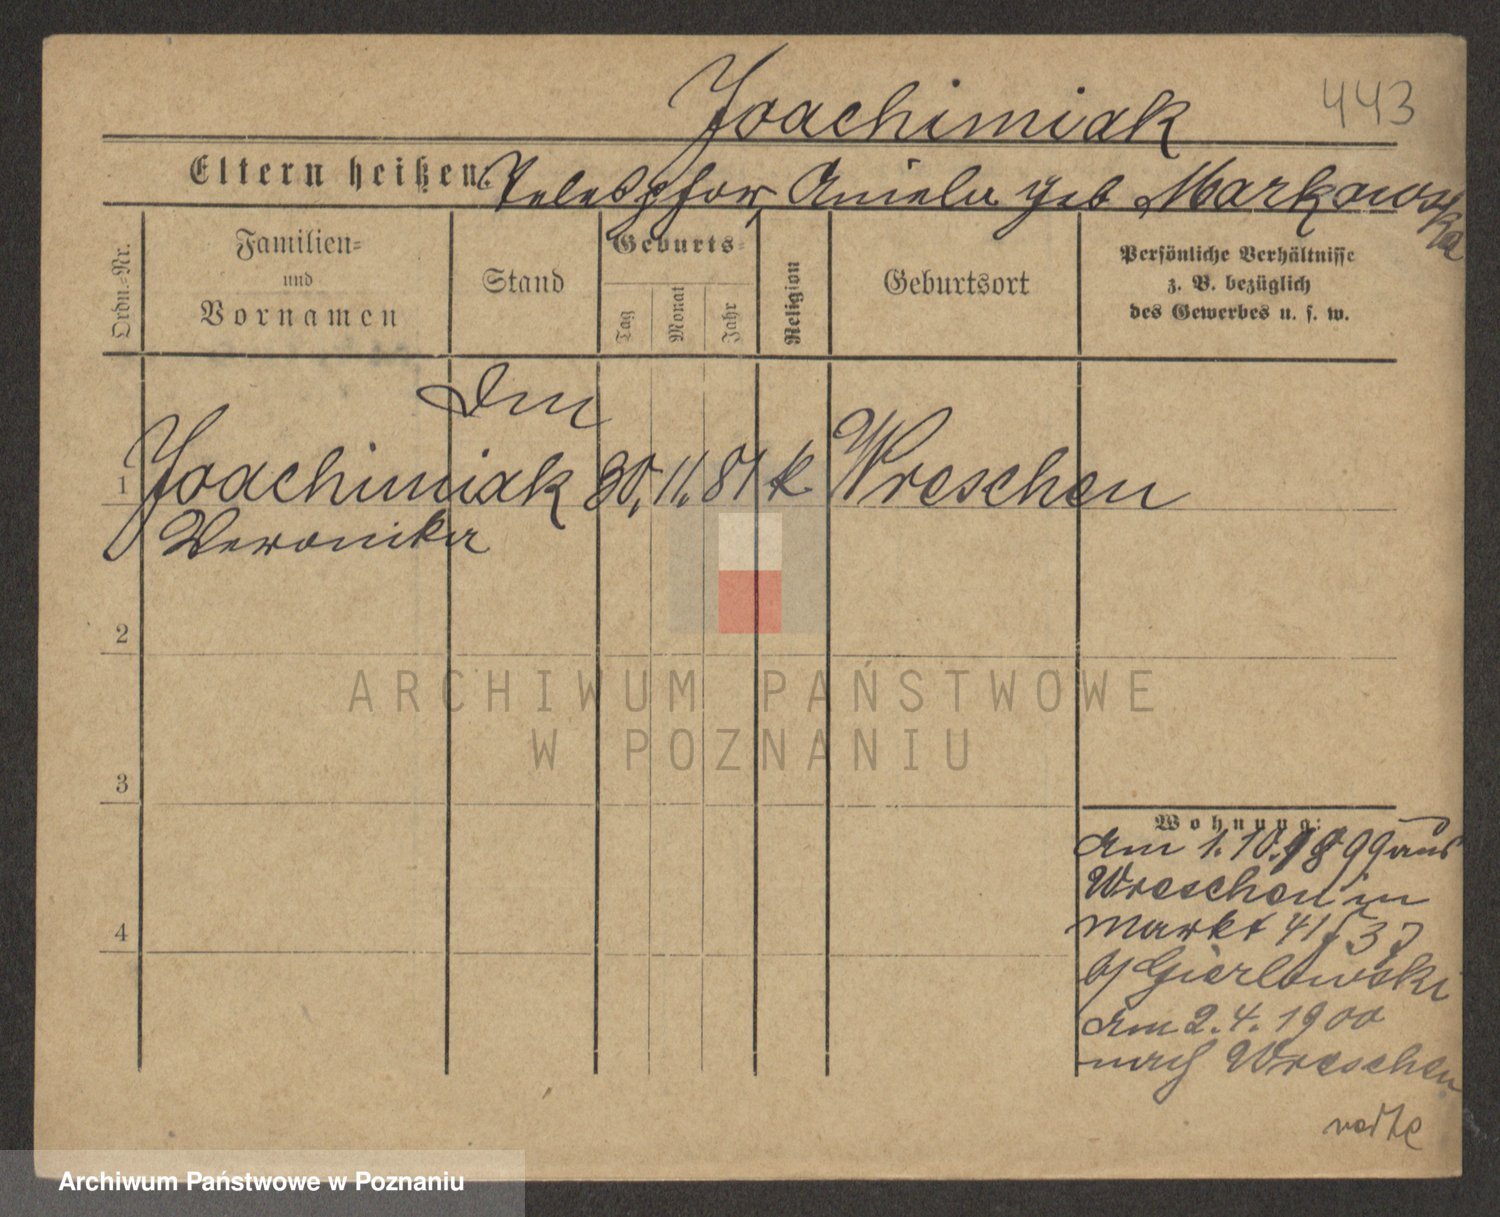 Joachimiak 443
Eltern heißen: Telesphor, Aniela geb Markowska
Ordn.-Nr.
Familien-
und
Vornamen
Stand
Geburts-
Tag
Monat
Jahr
Religion
Geburtsort
Persönliche Verhältnisse
z. B. bezüglich
des Gewerbes u. s. w.
1 Joachimiak 30. 11. 81 k Wreschen
Veronika
2
3
4
Wohnung:
am 1. 10. 1899 aus
Wreschen in
Markt 41
b/ Gierlowski
am 2. 4. 1900
nach Wreschen
ARCHIWUM PAŃSTWOWE
W POZNANIU
Archiwum Państwowe w Poznaniu